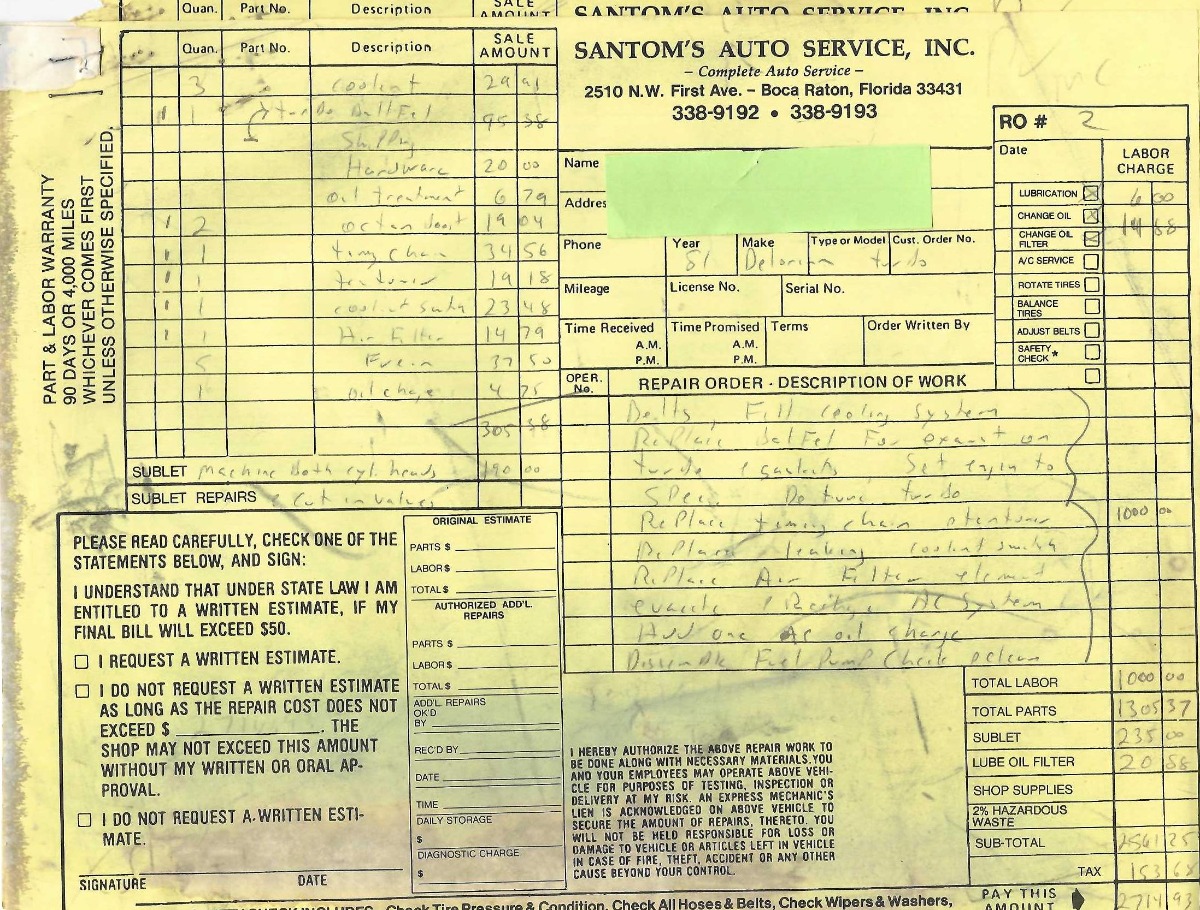 Quan. Part No. Description SALE AMOUNT SANTOM'S AUTO SERVICE, INC.
Quan. Part No. Description SALE AMOUNT
3 coolant 29 91
1 turbo
95 38
Shipping
Hardware 20 00
oil treatment 6 79
2 octan boost 19 04
1 timg chain 34 56
1 tentioner 19 18
1 coolant switch 23 48
1 Air Filter 14 79
5 Freon 37 50
1 oil charge 4 75
305 38
SUBLET machine both cyl. heads 190 00
SUBLET REPAIRS & cut in valves
PART & LABOR WARRANTY
90 DAYS OR 4,000 MILES
WHICHEVER COMES FIRST
UNLESS OTHERWISE SPECIFIED.
SANTOM'S AUTO SERVICE, INC.
– Complete Auto Service –
2510 N.W. First Ave. – Boca Raton, Florida 33431
338-9192 • 338-9193
RO # 2
Date
LABOR CHARGE
LUBRICATION 6 00
CHANGE OIL 14 88
CHANGE OIL FILTER
A/C SERVICE
ROTATE TIRES
BALANCE TIRES
ADJUST BELTS
SAFETY CHECK *
Name
Addres
Phone Year 81 Make Delorian Type or Model turbo Cust. Order No.
Mileage License No. Serial No.
Time Received A.M. P.M. Time Promised A.M. P.M. Terms Order Written By
OPER. No. REPAIR ORDER - DESCRIPTION OF WORK
Belts, Fill cooling system
RePlace For exaust on
turbo & gaskets Set engin to
SPec. Detune turbo
RePlace timing chain & tentioner 1000 00
RePlace leaking coolant switch
RePlace Air Filter element
evacute & Recharge AC System
Add one AC oil charge
Dissemble Fuel Pump Check & clean
PLEASE READ CAREFULLY, CHECK ONE OF THE
STATEMENTS BELOW, AND SIGN:
I UNDERSTAND THAT UNDER STATE LAW I AM
ENTITLED TO A WRITTEN ESTIMATE, IF MY
FINAL BILL WILL EXCEED $50.
I REQUEST A WRITTEN ESTIMATE.
I DO NOT REQUEST A WRITTEN ESTIMATE
AS LONG AS THE REPAIR COST DOES NOT
EXCEED $ . THE
SHOP MAY NOT EXCEED THIS AMOUNT
WITHOUT MY WRITTEN OR ORAL AP-
PROVAL.
I DO NOT REQUEST A WRITTEN ESTI-
MATE.
SIGNATURE DATE
ORIGINAL ESTIMATE
PARTS $
LABOR $
TOTAL $
AUTHORIZED ADD'L. REPAIRS
PARTS $
LABOR $
TOTAL $
ADD'L. REPAIRS
OK'D
BY
REC'D BY
DATE
TIME
DAILY STORAGE
$
DIAGNOSTIC CHARGE
$
I HEREBY AUTHORIZE THE ABOVE REPAIR WORK TO
BE DONE ALONG WITH NECESSARY MATERIALS. YOU
AND YOUR EMPLOYEES MAY OPERATE ABOVE VEHI-
CLE FOR PURPOSES OF TESTING, INSPECTION OR
DELIVERY AT MY RISK. AN EXPRESS MECHANIC'S
LIEN IS ACKNOWLEDGED ON ABOVE VEHICLE TO
SECURE THE AMOUNT OF REPAIRS, THERETO. YOU
WILL NOT BE HELD RESPONSIBLE FOR LOSS OR
DAMAGE TO VEHICLE OR ARTICLES LEFT IN VEHICLE
IN CASE OF FIRE, THEFT, ACCIDENT OR ANY OTHER
CAUSE BEYOND YOUR CONTROL.
TOTAL LABOR 1000 00
TOTAL PARTS 1305 37
SUBLET 235 00
LUBE OIL FILTER 20 88
SHOP SUPPLIES
2% HAZARDOUS WASTE
SUB-TOTAL 2561 25
TAX 153 68
PAY THIS AMOUNT 2714 93
INCLUDES: Check Tire Pressure & Condition, Check All Hoses & Belts, Check Wipers & Washers,